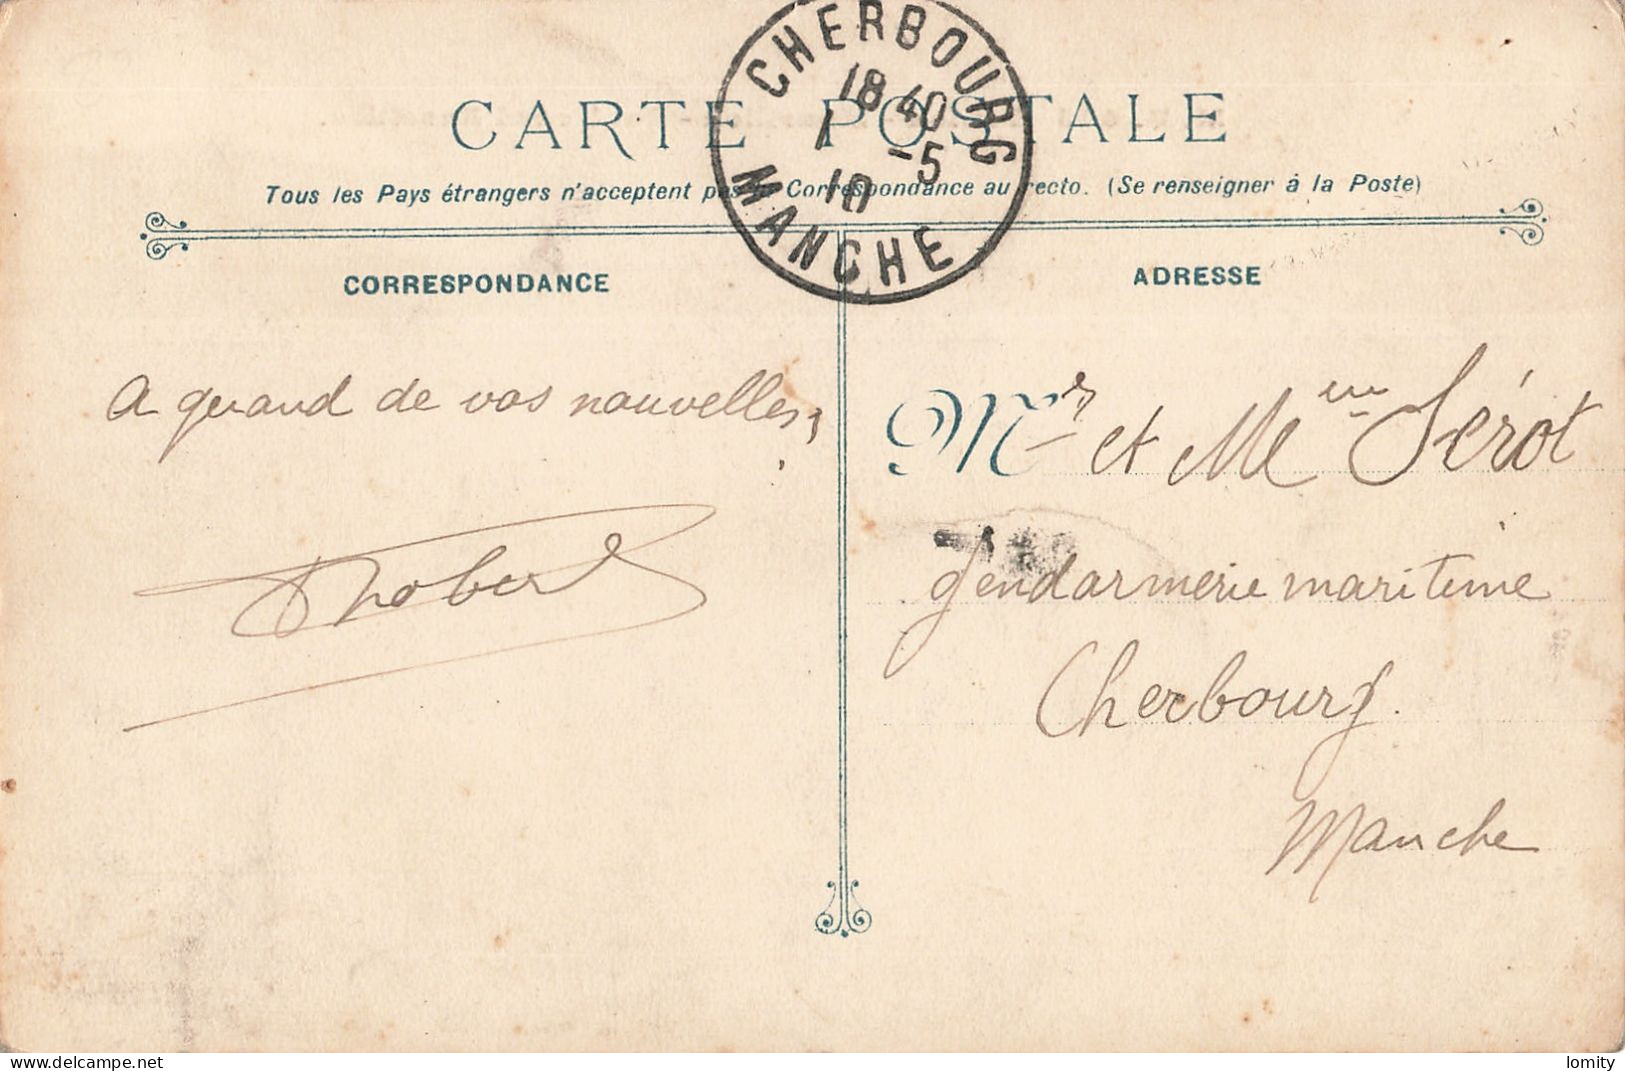 CARTE POSTALE
Tous les Pays étrangers n'acceptent pas la Correspondance au recto. (Se renseigner à la Poste)
CHERBOURG
18 40
1 -5
10
MANCHE
CORRESPONDANCE
ADRESSE
A quand de vos nouvelles,
Mr et Mme Sérot
Gendarmerie maritime
Cherbourg.
Manche
lesphotosdelomity.net
lomity